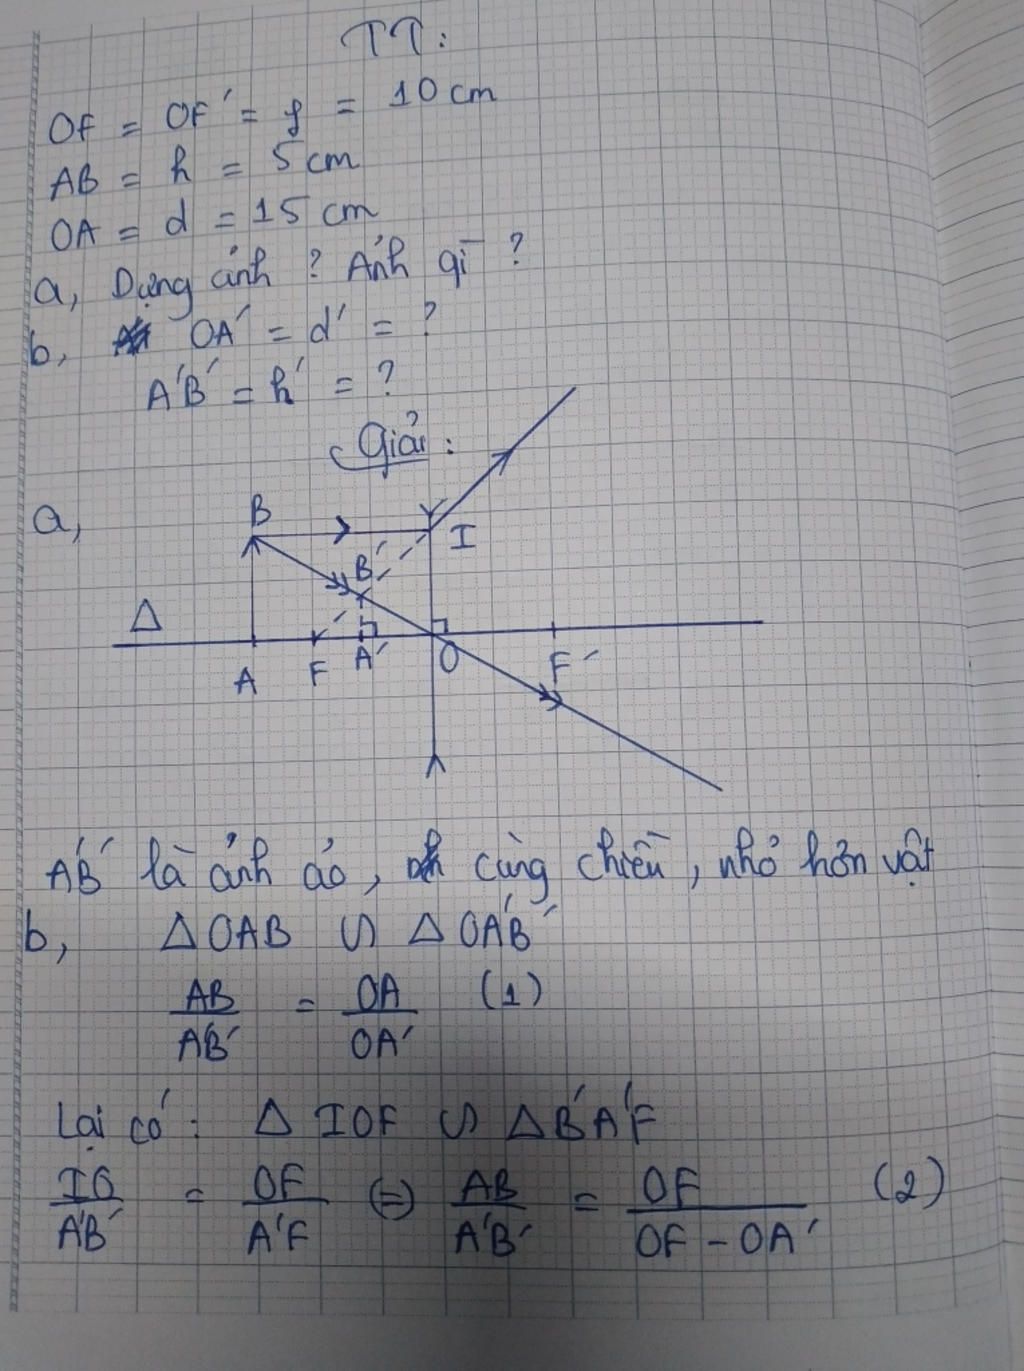 TT:
OF = OF' = f = 10 cm
AB = h = 5 cm
OA = d = 15 cm
a, Dựng ảnh ? Ảnh gì ?
b, OA' = d' = ?
A'B' = h' = ?
Giải:
a,
B
I
B'
Δ
A F A' O F'
A'B' là ảnh ảo, cùng chiều, nhỏ hơn vật
b, Δ OAB ∽ Δ OA'B'
AB/A'B' = OA/OA' (1)
Lại có: Δ IOF ∽ Δ B'A'F
IO/A'B' = OF/A'F (=) AB/A'B' = OF/OF - OA' (2)